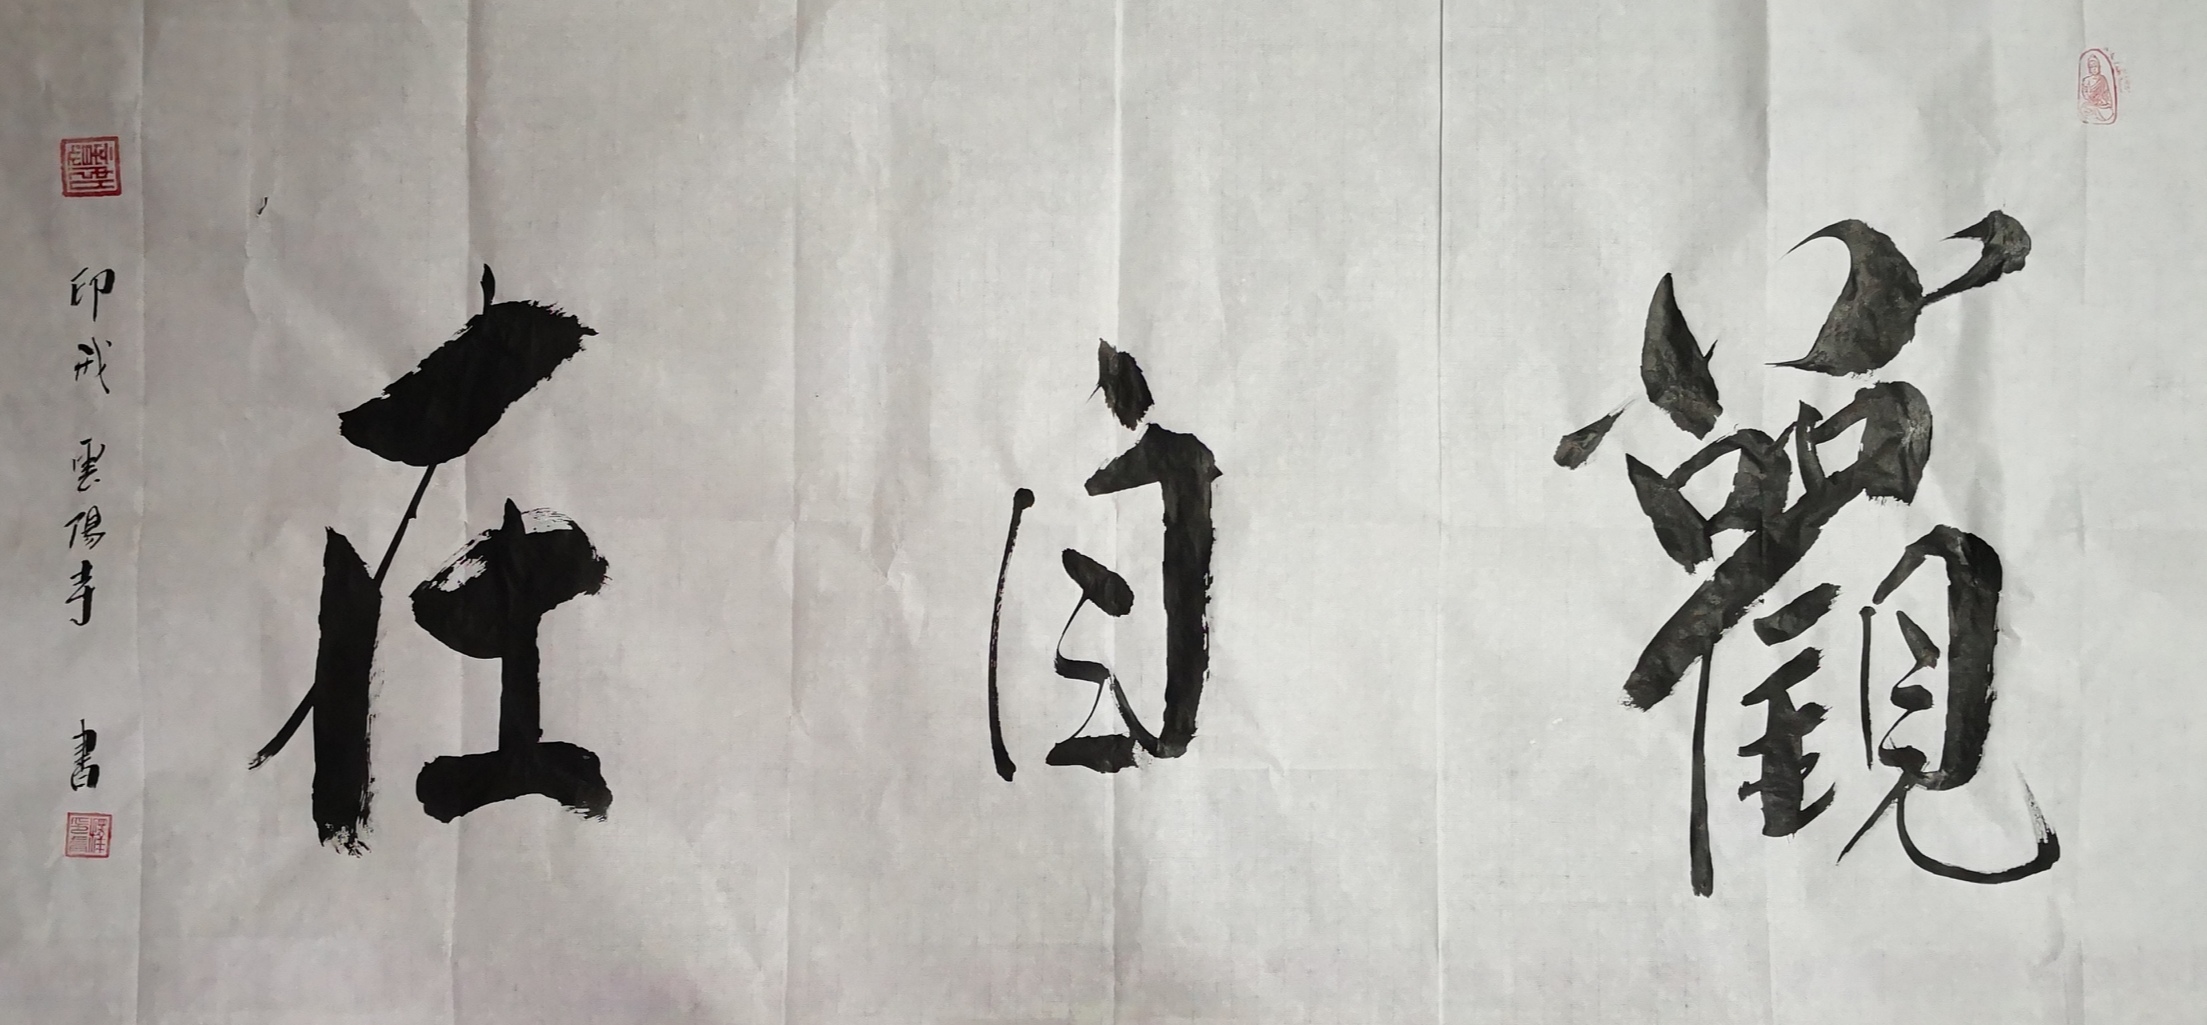 觀自在
印戒 雲陽寺 書